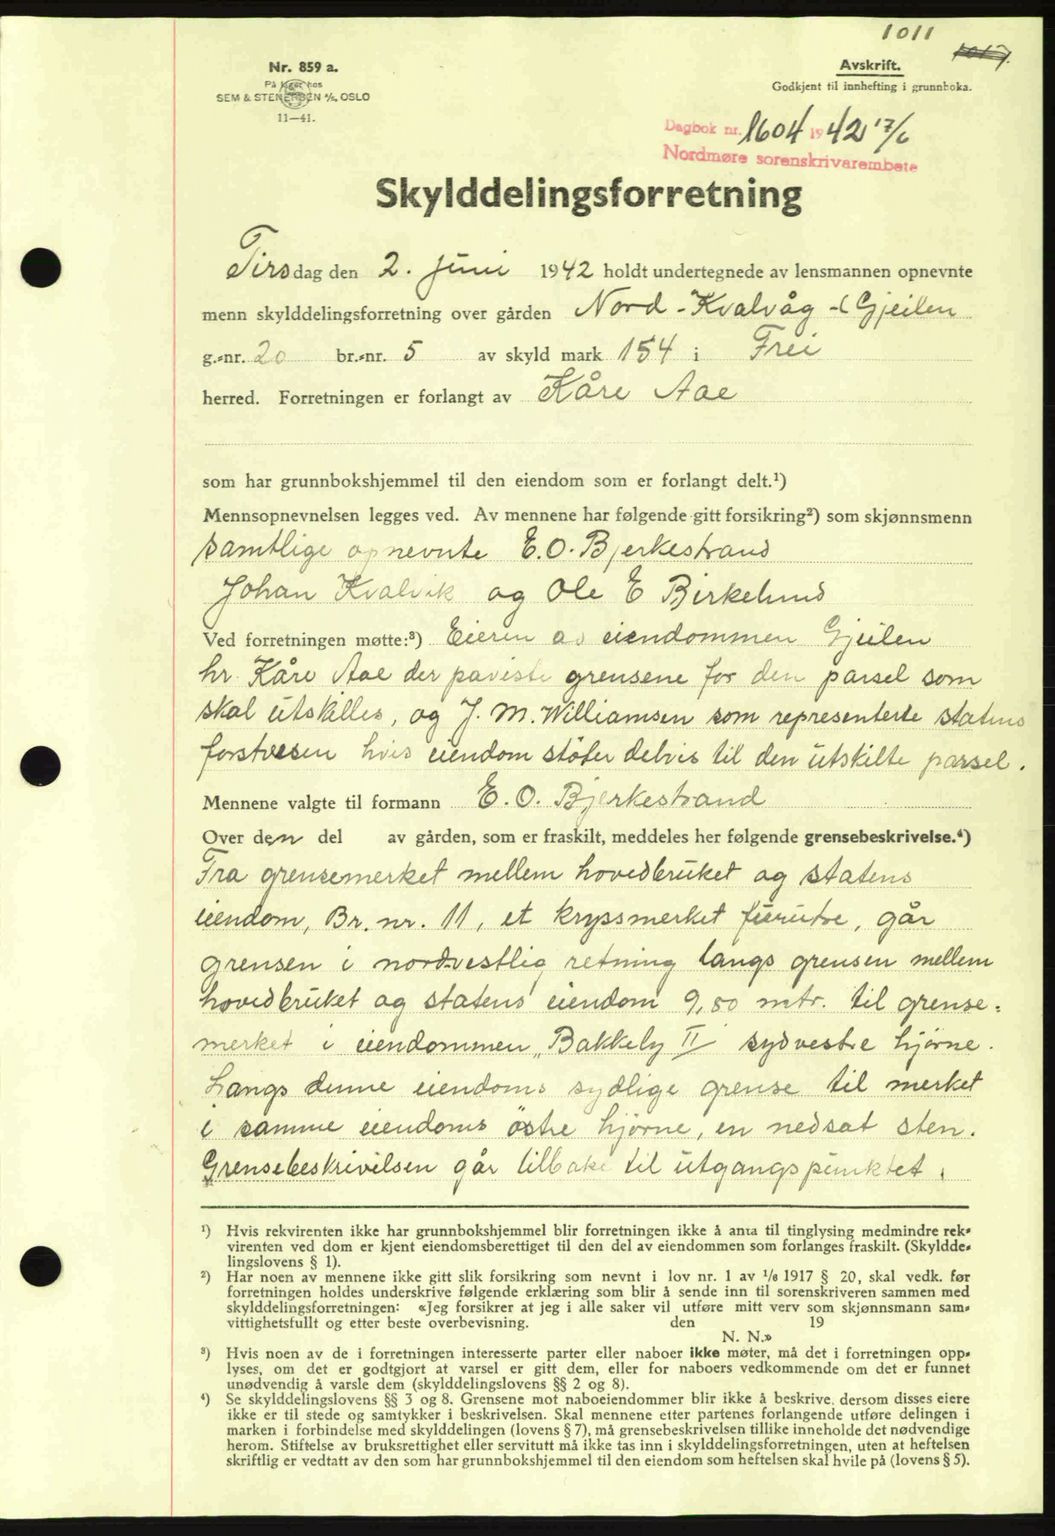 1011
1017.
Nr. 859 a.
På lager hos
SEM & STENERSEN A/S, OSLO
11—41.
Avskrift.
Godkjent til innhefting i grunnboka.
Dagbok nr. 1604 1942 17/6
Nordmøre sorenskrivarembete
Skylddelingsforretning
Tirsdag den 2. juni 1942 holdt undertegnede av lensmannen opnevnte
menn skylddelingsforretning over gården Nord-Kvalvåg - (Gjeilen
g.-nr. 20 br.-nr. 5 av skyld mark 154 i Frei
herred. Forretningen er forlangt av Kåre Aae
som har grunnbokshjemmel til den eiendom som er forlangt delt.¹)
Mennsopnevnelsen legges ved. Av mennene har følgende gitt forsikring²) som skjønnsmenn
samtlige opnevnte E. O. Bjerkestrand
Johan Kvalvik og Ole E Birkelund
Ved forretningen møtte:³) Eieren av eiendommen Gjeilen
hr. Kåre Aae der påviste grensene for den parsel som
skal utskilles, og J. M. Williamsen som representerte statens
forstvesen hvis eiendom støter delvis til den utskilte parsel.
Mennene valgte til formann E. O. Bjerkestrand
Over den del av gården, som er fraskilt, meddeles her følgende grensebeskrivelse.⁴)
Fra grensemerket mellem hovedbruket og statens
eiendom, Br. nr. 11, et kryssmerket furutre, går
grensen i nordvestlig retning langs grensen mellem
hovedbruket og statens eiendom 9,80 mtr. til grense-
merket i eiendommen „Bakkely II" sydvestre hjørne.
Langs denne eiendoms sydlige grense til merket
i samme eiendoms østre hjørne, en nedsat sten.
Grensebeskrivilsen går tilbake til utgangspunktet.
¹) Hvis rekvirenten ikke har grunnbokshjemmel blir forretningen ikke å anta til tinglysing medmindre rek-
virenten ved dom er kjent eiendomsberettiget til den del av eiendommen som forlanges fraskilt. (Skyldde-
lingslovens § 1).
²) Har noen av mennene ikke gitt slik forsikring som nevnt i lov nr. 1 av ¹/₆ 1917 § 20, skal vedk. før
forretningen holdes underskrive følgende erklæring som blir å sende inn til sorenskriveren sammen med
skylddelingsforretningen: «Jeg forsikrer at jeg i alle saker vil utføre mitt verv som skjønnsmann sam-
vittighetsfullt og etter beste overbevisning. den 19
N. N.»
³) Hvis noen av de i forretningen interesserte parter eller naboer ikke møter, må det i forretningen opp-
lyses, om det er godtgjort at varsel er gitt dem, eller for naboers vedkommende om det er funnet
unødvendig å varsle dem (skylddelingslovens §§ 2 og 8).
⁴) Se skylddelingslovens §§ 3 og 8. Grensene mot naboeiendommer blir ikke å beskrive, dersom disses eiere
ikke er til stede og samtykker i beskrivelsen. Skal mennene etter partenes forlangende utføre delingen i
marken i forbindelse med skylddelingen (lovens § 7), må grensebeskrivelsen tillike inneholde det nødvendige
herom. Stiftelse av bruksrettighet eller servitutt må ikke tas inn i skylddelingsforretningen, uten at heftelsen
skriftlig er vedtatt av den som har grunnbokshjemmel til den eiendom som heftelsen skal hvile på (lovens § 5).